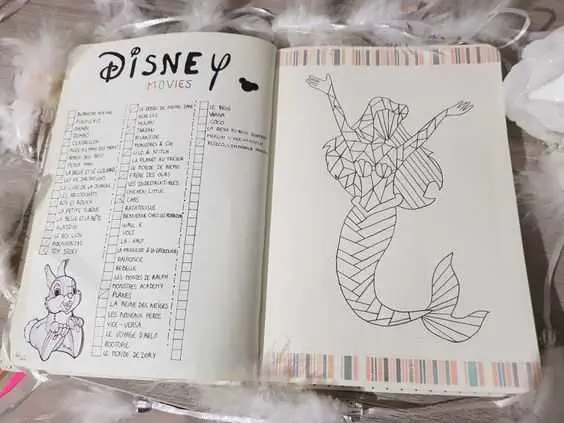 DISNEY
MOVIES
BLANCHE NEIGE
PINOCCHIO
BAMBI
DUMBO
CENDRILLON
ALICE AU PAYS DES MERV
PETER PAN
LA BELLE ET LE CLOCHARD
LE LIVRE DE LA JUNGLE
LES ARISTOCHATS
ROX ET ROUKY
LA PETITE SIRÈNE
LA BELLE ET LA BÊTE
ALADDIN
LE ROI LION
POCAHONTAS
TOY STORY
LE BOSSU DE NOTRE DAME
HERCULE
MULAN
TARZAN
DINOSAURE
MONSTRES & CIE
LILO & STITCH
LA PLANÈTE AU TRÉSOR
LE MONDE DE NEMO
FRÈRE DES OURS
LES INDESTRUCTIBLES
CHICKEN LITTLE
CARS
RATATOUILLE
BIENVENUE CHEZ LES ROBINSON
WALL E
VOLT
LÀ-HAUT
LA PRINCESSE & LA GRENOUILLE
RAIPONCE
REBELLE
LES MONDES DE RALPH
MONSTRES ACADEMY
PLANES
LA REINE DES NEIGES
LES NOUVEAUX HÉROS
VICE-VERSA
LE VOYAGE D'ARLO
ZOOTOPIE
LE MONDE DE DORY
LE BGG
VAIANA
COCO
LA REINE DES NEIGES
MERLIN L'